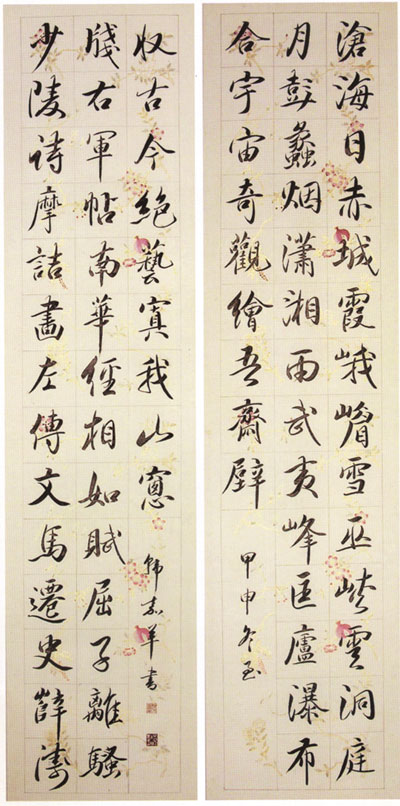 滄海日赤城霞峨嵋雪巫峽雲洞庭
月彭蠡烟瀟湘雨武夷峰匡廬瀑布
合宇宙奇觀繪吾齋壁
甲申冬至
少陵詩摩詰畫左傳文馬遷史薛濤
牋右軍帖南華經相如賦屈子離騷
収古今絕藝寘我山窓
韩嘉羊書